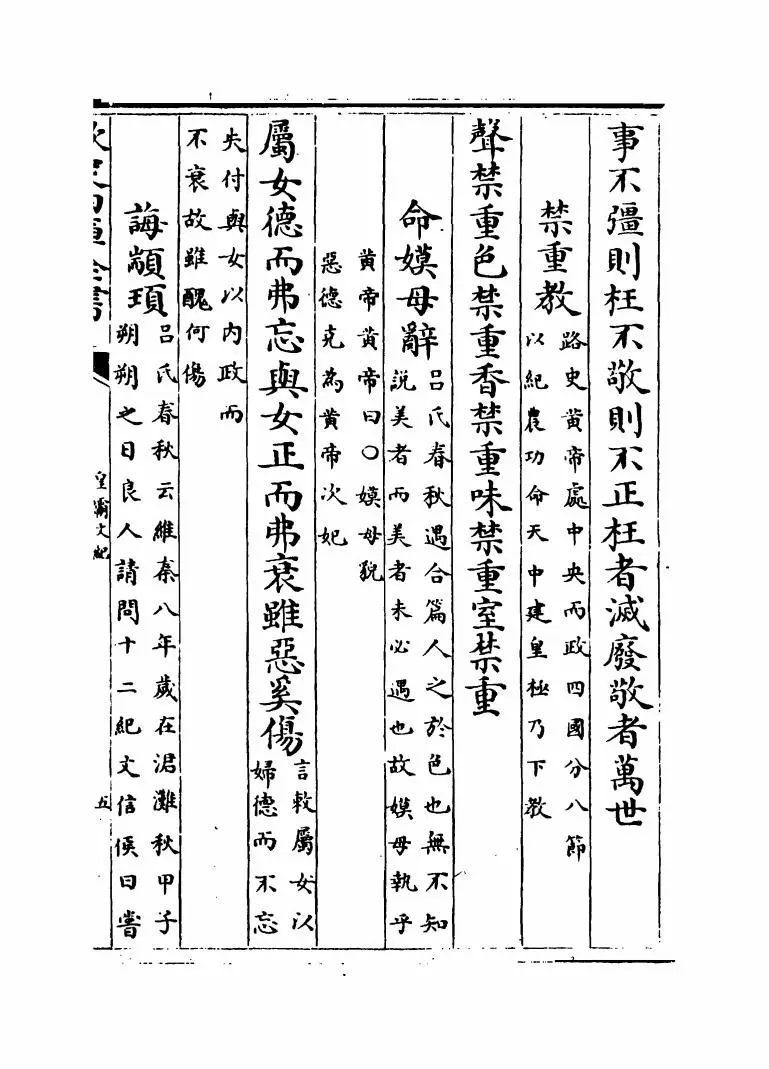 事不彊則枉不敬則不正枉者滅廢敬者萬世
禁重教
路史黄帝處中央而政四國分八節
以紀農功命天中建皇極乃下教
聲禁重色禁重香禁重味禁重室禁重
命嫫母辭
吕氏春秋遇合篇人之於色也無不知
説美者而美者未必遇也故嫫母執乎
黄帝黄帝曰〇嫫母貌
惡德克為黄帝次妃
屬女德而弗忘與女正而弗衰雖惡奚傷
言敕屬女以
婦德而不忘
失付與女以内政而
不衰故雖醜何傷
誨顓頊
吕氏春秋云維秦八年歲在涒灘秋甲子
朔朔之日良人請問十二紀文信侯曰嘗
欽定四庫全書
皇霸文紀
五